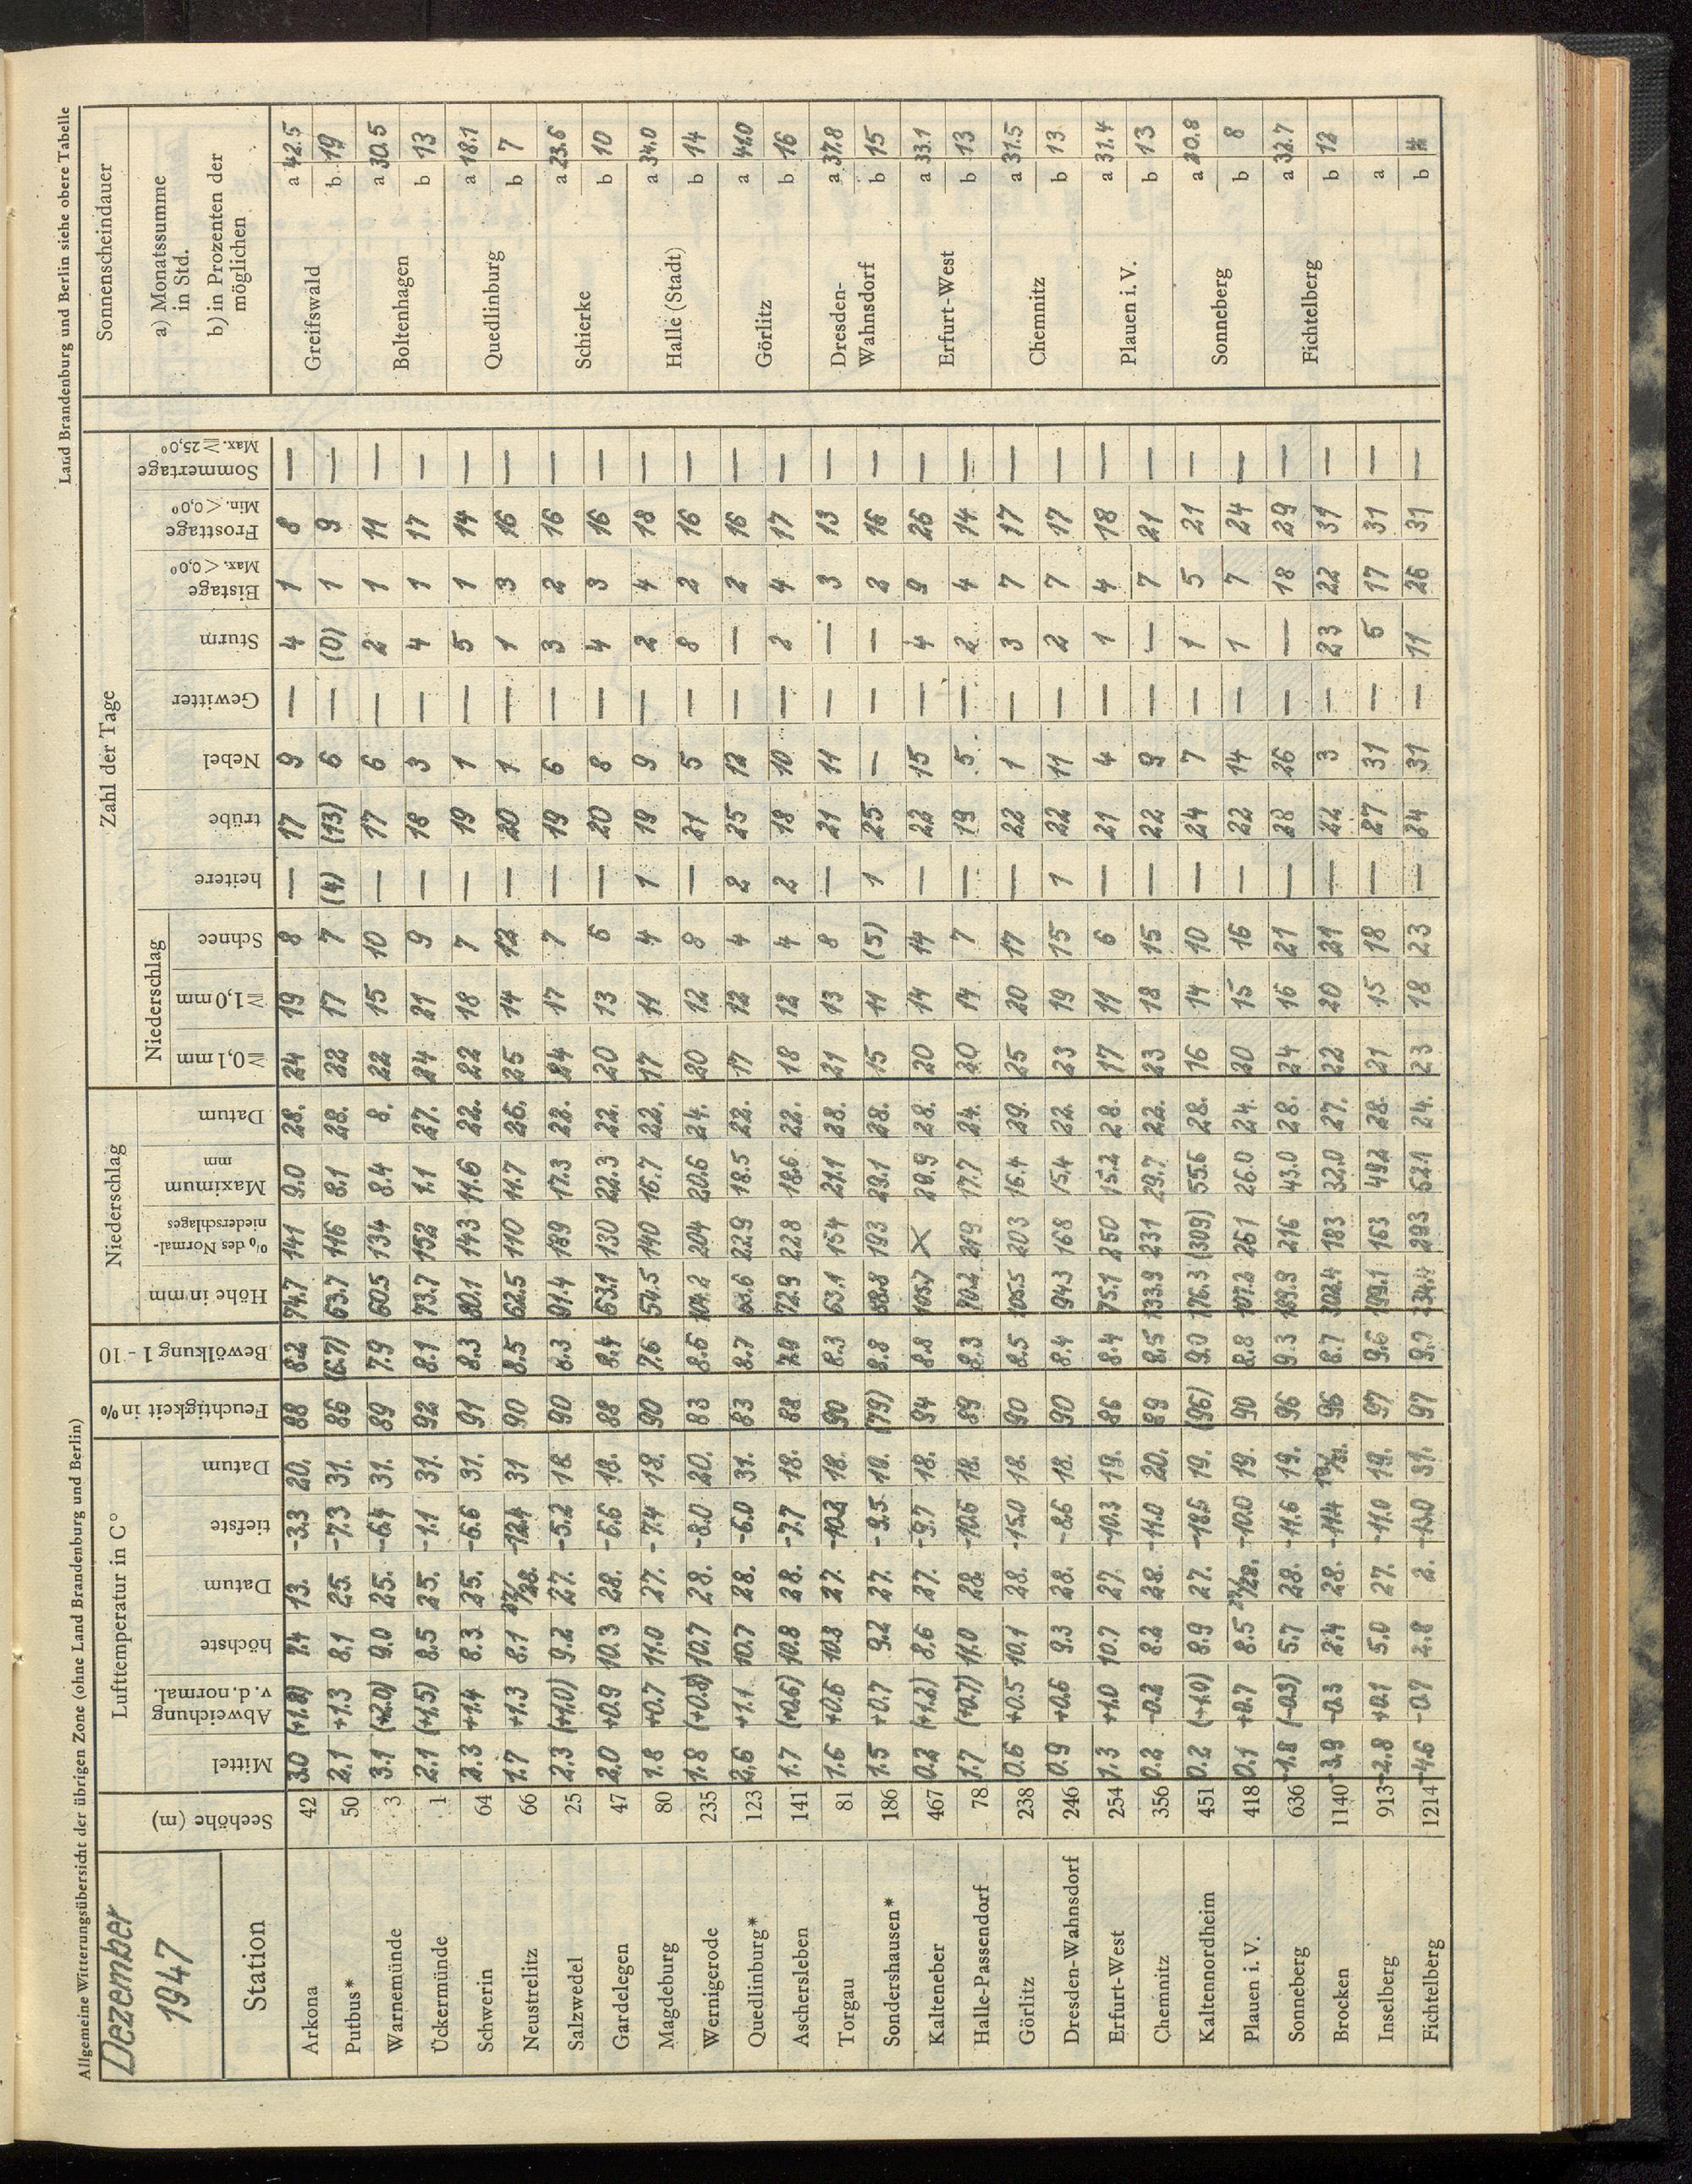 Allgemeine Witterungsübersicht der übrigen Zone (ohne Land Brandenburg und Berlin)
Land Brandenburg und Berlin siehe obere Tabelle
Dezember
1947
Station
Seehöhe (m)
Lufttemperatur in C°
Mittel
Abweichung v. d. normal.
höchste
Datum
tiefste
Datum
Feuchtigkeit in %
Bewölkung 1 - 10
Niederschlag
Höhe in mm
% des Normal-niederschlages
Maximum mm
Datum
Zahl der Tage
Niederschlag
≧ 0,1 mm
≧ 1,0 mm
Schnee
heitere
trübe
Nebel
Gewitter
Sturm
Eistage Max. < 0,0°
Frosttage Min. < 0,0°
Sommertage Max. ≧ 25,0°
Arkona 42 3.0 (+1.8) 7.4 13. -3.3 20. 88 8.2 74.7 141 9.0 28. 24 19 8 — 17 9 — 4 1 8 —
Putbus* 50 2.1 +1.3 8.1 25. -7.3 31. 86 (6.7) 63.7 116 8.1 28. 22 17 7 (4) (13) 6 — (0) 1 9 —
Warnemünde 3 3.1 (+2.0) 9.0 25. -6.4 31. 89 7.9 60.5 134 8.4 8. 22 15 10 — 17 6 — 2 1 11 —
Ückermünde 1 2.1 (+1.5) 8.5 25. 31. 92 8.1 73.7 152 27. 24 21 9 — 18 3 — 4 1 17 —
Schwerin 64 2.3 +1.4 8.3 25. -6.6 31. 91 8.3 80.1 143 11.6 22. 22 18 7 — 19 1 — 5 1 14 —
Neustrelitz 66 1.7 +1.3 8.1 27./28. -12.4 31 90 8.5 62.5 110 11.7 26. 25 14 12 — 20 1 — 1 3 16 —
Salzwedel 25 2.3 (+1.0) 9.2 27. -5.2 18. 90 8.3 91.4 189 17.3 22. 24 17 7 — 19 6 — 3 2 16 —
Gardelegen 47 2.0 +0.9 10.3 28. -6.6 18. 88 8.4 63.1 130 22.3 22. 20 13 6 — 20 8 — 4 3 16 —
Magdeburg 80 1.8 +0.7 11.0 27. -7.4 18. 90 7.6 54.5 140 16.7 22. 17 11 4 1 19 9 — 2 4 18 —
Wernigerode 235 1.8 (+0.8) 10.7 28. -8.0 20. 83 8.6 104.2 204 20.6 24. 20 12 8 — 21 5 — 8 2 16 —
Quedlinburg* 123 2.6 +1.1 10.7 28. -6.0 31. 83 8.7 229 18.5 22. 17 12 4 2 25 12 — — 2 16 —
Aschersleben 141 1.7 (+0.6) 10.8 28. -7.7 18. 88 7.9 72.9 228 18.6 22. 18 12 4 2 18 10 — 2 4 17 —
Torgau 81 1.6 +0.6 10.8 27. -10.2 18. 90 8.3 63.1 154 21.1 28. 21 13 8 — 21 11 — — 3 13 —
Sondershausen* 186 1.5 +0.7 9.2 27. -9.5 19. (79) 8.8 68.8 193 29.1 28. 15 11 (5) 1 25 — — — 2 16 —
Kalteneber 467 0.2 (+1.2) 8.6 27. -9.7 18. 94 8.8 105.7 X 29.9 28. 20 14 14 — 22 15 — 4 9 26 —
Halle-Passendorf 78 1.7 (+0.7) 11.0 28. -10.6 18. 89 8.3 70.2 219 17.7 24. 20 14 7 — 19 5 — 2 4 14 —
Görlitz 238 0.6 +0.5 10.1 28. -15.0 18. 90 8.5 105.5 203 16.4 29. 25 20 17 — 22 1 — 3 7 17 —
Dresden-Wahnsdorf 246 0.9 +0.6 9.3 28. -8.6 18. 90 8.4 94.3 168 15.4 22. 23 19 15 1 22 11 — 2 7 17 —
Erfurt-West 254 1.3 +1.0 10.7 27. -10.3 19. 86 8.4 75.1 250 15.2 28. 17 11 6 — 21 4 — 1 4 18 —
Chemnitz 356 0.2 -0.2 8.2 28. -11.0 20. 89 8.5 133.9 231 29.7 22. 23 18 15 — 22 9 — — 7 21 —
Kaltennordheim 451 0.2 (+1.0) 8.9 27. -18.6 19. (96) 9.0 176.3 (309) 55.6 28. 16 14 10 — 24 7 — 1 5 21 —
Plauen i. V. 418 0.1 +0.7 8.5 27./28. -10.0 19. 90 8.8 107.2 261 26.0 24. 20 15 16 — 22 14 — 1 7 24 —
Sonneberg 636 -1.8 (-0.3) 5.7 28. -11.6 19. 96 9.3 189.9 216 43.0 28. 24 16 21 — 28 26 — — 18 29 —
Brocken 1140 -3.9 -0.3 2.4 28. -11.4 96 8.7 302.4 183 32.0 27. 22 20 21 — 22 3 — 23 22 31 —
Inselberg 913 -2.8 +0.1 5.0 27. -11.0 19. 97 9.6 199.1 163 49.2 28. 21 15 18 — 27 31 — 5 17 31 —
Fichtelberg 1214 -4.6 -0.7 2.8 2. -13.0 31. 97 9.7 234.4 293 52.1 24. 23 18 23 — 24 31 — 11 26 31 —
Sonnenscheindauer
a) Monatssumme in Std.
b) in Prozenten der möglichen
Greifswald a 42.5 b 19
Boltenhagen a 30.5 b 13
Quedlinburg a 18.1 b 7
Schierke a 23.6 b 10
Halle (Stadt) a 34.0 b 14
Görlitz a 41.0 b 16
Dresden-Wahnsdorf a 37.8 b 15
Erfurt-West a 33.1 b 13
Chemnitz a 31.5 b 13
Plauen i. V. a 31.4 b 13
Sonneberg a 20.8 b 8
Fichtelberg a 32.7 b 12
a
b